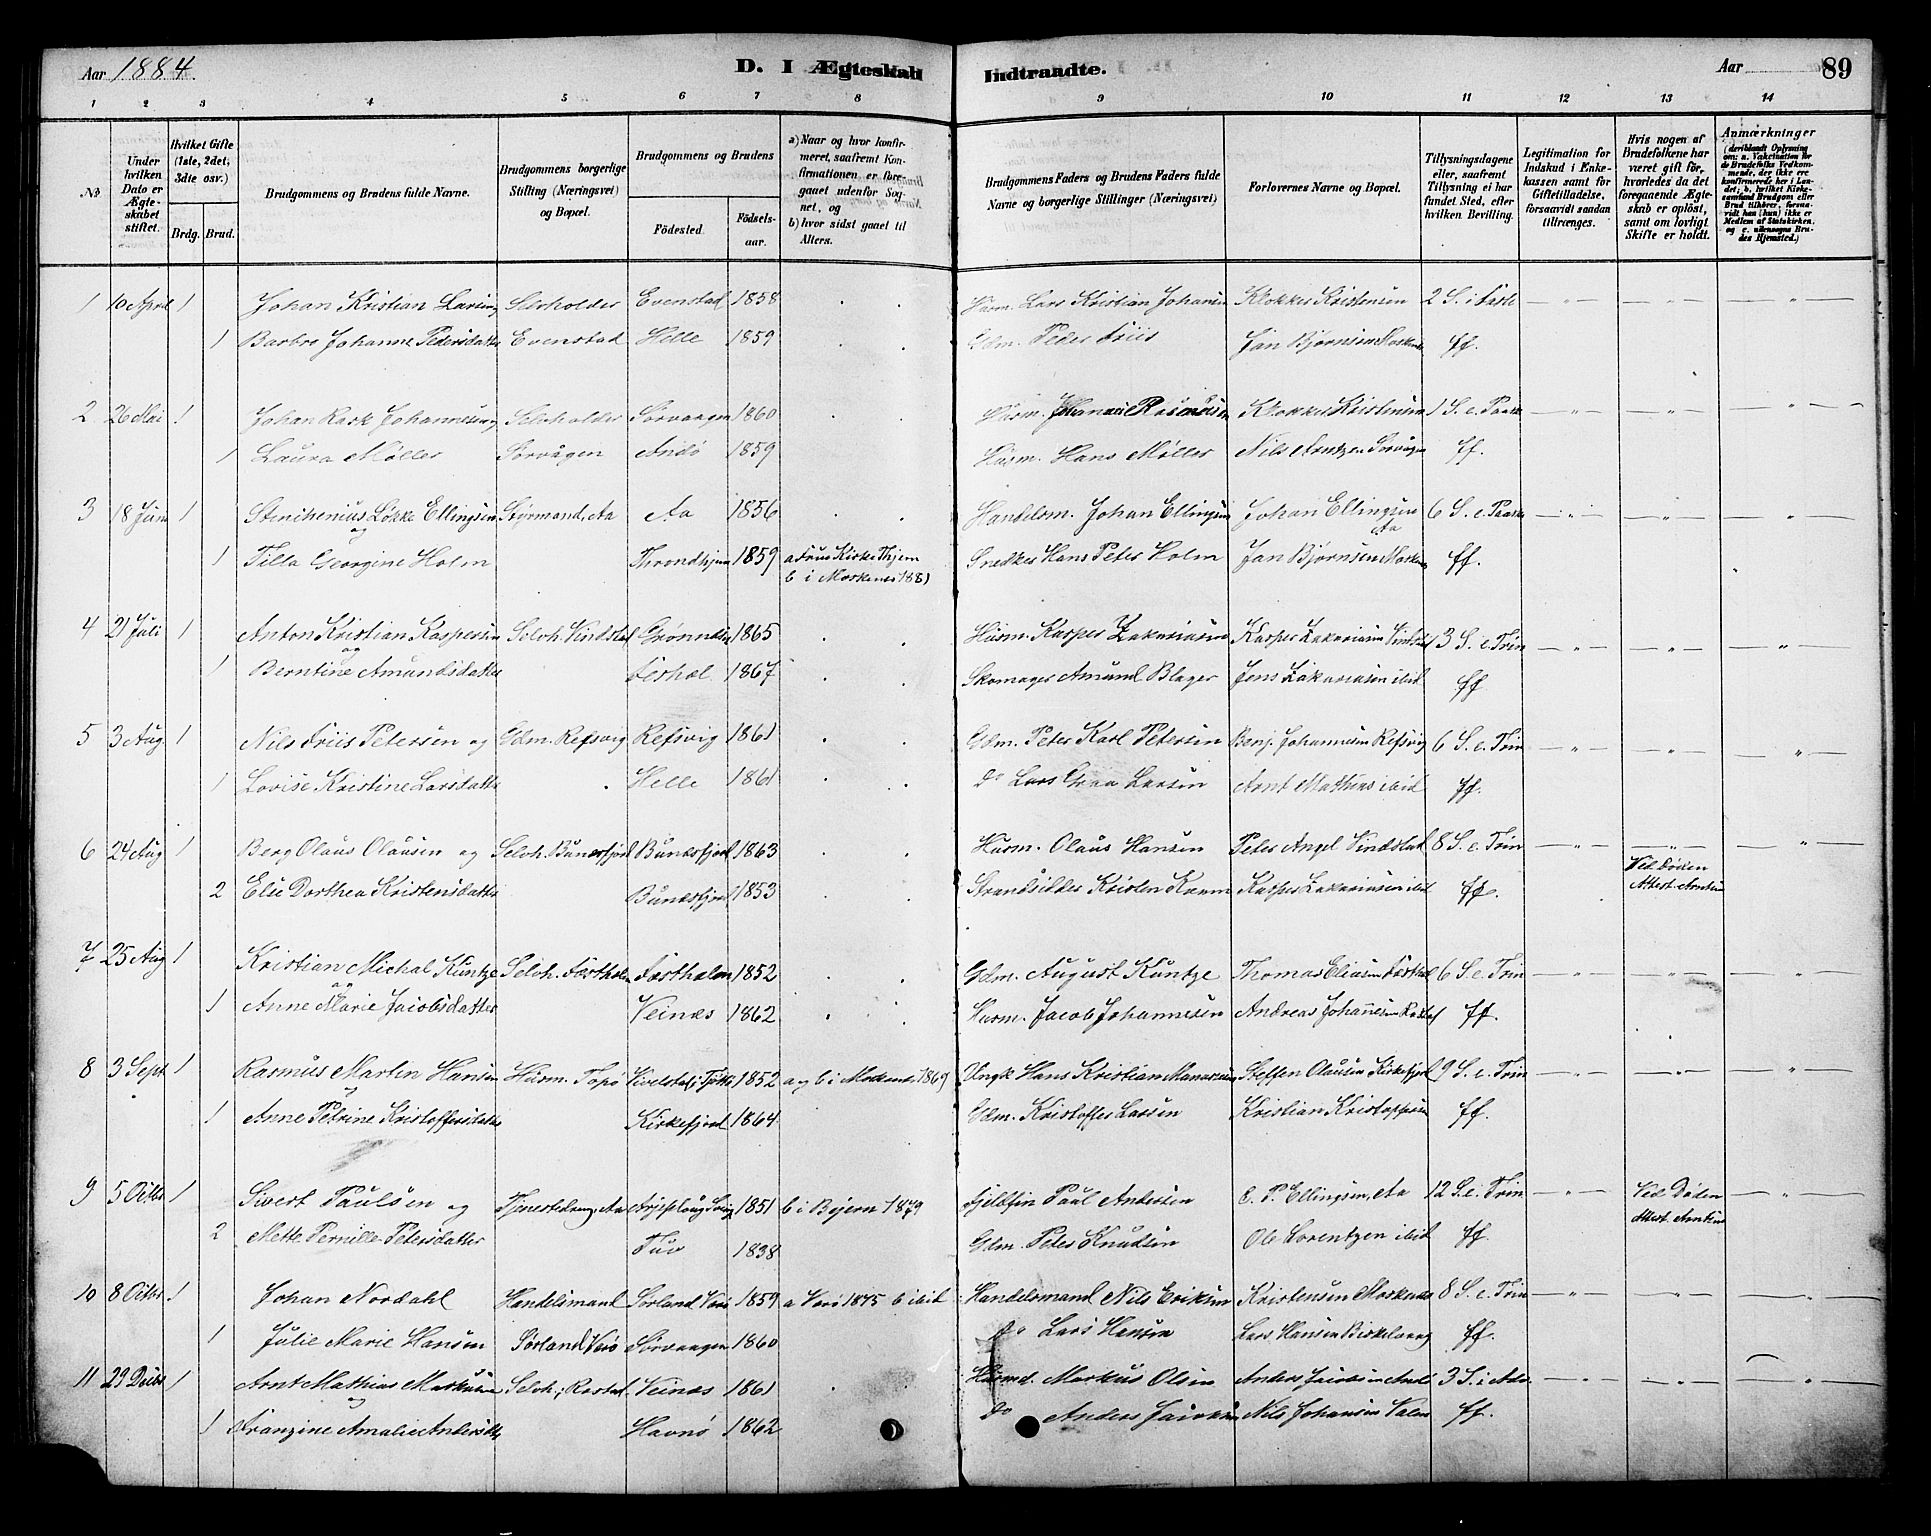 Aar 1884.
D. I Ægteskab
Indtraadte.
Aar
89
1 2 3 4 5 6 7 8 9 10 11 12 13 14
No
Under hvilken Dato er Ægteskabet stiftet.
Hvilket Gifte (1ste, 2det, 3dte osv.)
Brdg. Brud.
Brudgommens og Brudens fulde Navne.
Brudgommens borgerlige Stilling (Næringsvei) og Bopæl.
Brudgommens og Brudens
Födested.
Födselsaar.
a) Naar og hvor konfirmeret, saafremt Konfirmationen er foregaaet udenfor Sognet, og
b) hvor sidst gaaet til Alters.
Brudgommens Faders og Brudens Faders fulde Navne og borgerlige Stillinger (Næringsvei)
Forlovernes Navne og Bopæl.
Tillysningsdagene eller, saafremt Tillysning ei har fundet Sted, efter hvilken Bevilling.
Legitimation for Indskud i Enkekassen samt for Giftetilladelse, forsaavidt saadan tiltrænges.
Hvis nogen af Brudefolkene har været gift för, hvorledes da det foregaaende Ægteskab er oplöst, samt om lovligt Skifte er holdt.
Anmærkninger (deriblandt Oplysning om: a. Vakcination for de Brudefolks Vedkommende, der ikke ere konfirmerede her i Landet; b. hvilket Kirkesamfund Brudgom eller Brud tilhörer, forsaavidt han (hun) ikke er Medlem af Statskirken, og c. udensogns Brudes Hjemsted.)
1 10 April 1 Johan Kristian Larsen og Selvholder Evenstad 1858 Husm. Lars Kristian Johansen Klokker Kristensen 2 S. i Faste
1 Barbro Johanne Pedersdatter Evenstad Helle 1859 Gdm. Peder Friis Jan Bjørnsen Moskenes ff.
2 26 Mai 1 Johan Rask Johannesen og Selvholder Sørvaagen 1860 Husm. Johannes Rasmussen Klokker Kristensen 1 S. e. Paaske
1 Laura Møller Sørvågen Andø 1859 Husm. Hans Møller Nils Arntzen Sørvågen ff.
3 18 Juni 1 Stenhenius Løkke Ellingsen og Styrmand, Aa Aa 1856 Handelsm. Johan Ellingsen Johan Ellingsen Aa 6 S. e. Paaske
1 Tilla Georgine Holm Throndhjem 1859 a Frue Kirke Thjem b i Moskenes 1881 Snedker Hans Peter Holm Jan Bjørnsen Moskenes ff.
4 21 Juli 1 Anton Kristian Kaspersen og Selvh. Vindstad 1865 Husm. Kasper Zakariasen Kasper Zakariasen Vindstad 3 S. e. Trin
1 Berntine Amundsdatter 1867 Skomager Amund Blager Jens Zakariasen ibid ff
5 3 Aug. 1 Nils Friis Petersen og Gdm. Refsvig Refsvig 1861 Gdm. Peter Karl Petersen Benj. Johannesen Refsvig 6 S. e. Trin
1 Lovise Kristine Larsdatter Helle 1861 do Lars Graa Larsen Arnt Mathias ibid ff.
6 24 Aug 1 Berg Olaus Olausen og Selvh. Bunesfjord Bunesfjord 1863 Husm. Olaus Hansen Peter Angel Vindstad 8 S. e. Trin
2 Elie Dorthea Kristensdatter Bunesfjord 1853 Strandsidder Kristen Kasper Zakariasen ibid ff. Ved Døden Attest
7 25 Aug 1 Kristian Michal Kuntze og Selvh. 1852 Gdm. August Kuntze Thomas Eliasen 6 S. e. Trin
1 Anne Marie Jacobsdatter Veines 1862 Husm. Jacob Johannesen Andreas Johannesen ff.
8 3 Sept 1 Rasmus Martin Hansen og Husm. Topø 1852 a og b i Moskenes 1869 Ungk Hans Kristian Steffen Olausen Kirkefjord 9 S. e. Trin
1 Anne Petrine Kristoffersdatter Kirkefjord 1864 Gdm. Kristoffer Larsen Kristian Kristoffersen ff.
9 5 Octbr 1 Sivert Paulsen og Tjenestedreng, Aa 1851 b i Bejern 1879 Fjeldfin Paul Andersen E. P. Ellingsen, Aa 12 S. e. Trin Ved Døden Attest
2 Mette Pernille Petersdatter Tuv 1838 Gdm. Peter Knudsen Ole Lorentzen ibid ff.
10 8 Octbr 1 Johan Nordahl Handelsmand Sørland Verø 1859 a Verø 1875 b ibid Handelsmand Nils Eriksen Kristensen Moskenes 8 S. e. Trin
1 Julie Marie Hansen Sørland Verø Sørvaagen 1860 do Lars Hansen Lars Hansen ff.
11 29 Decbr 1 Arnt Mathias Markusen og Selvh. Veines 1861 Husmd. Markus Olsen Anders 3 S. i Adv
1 Franzine Amalie Andersdtr Havnø 1862 do Anders Nils Johansen ff.